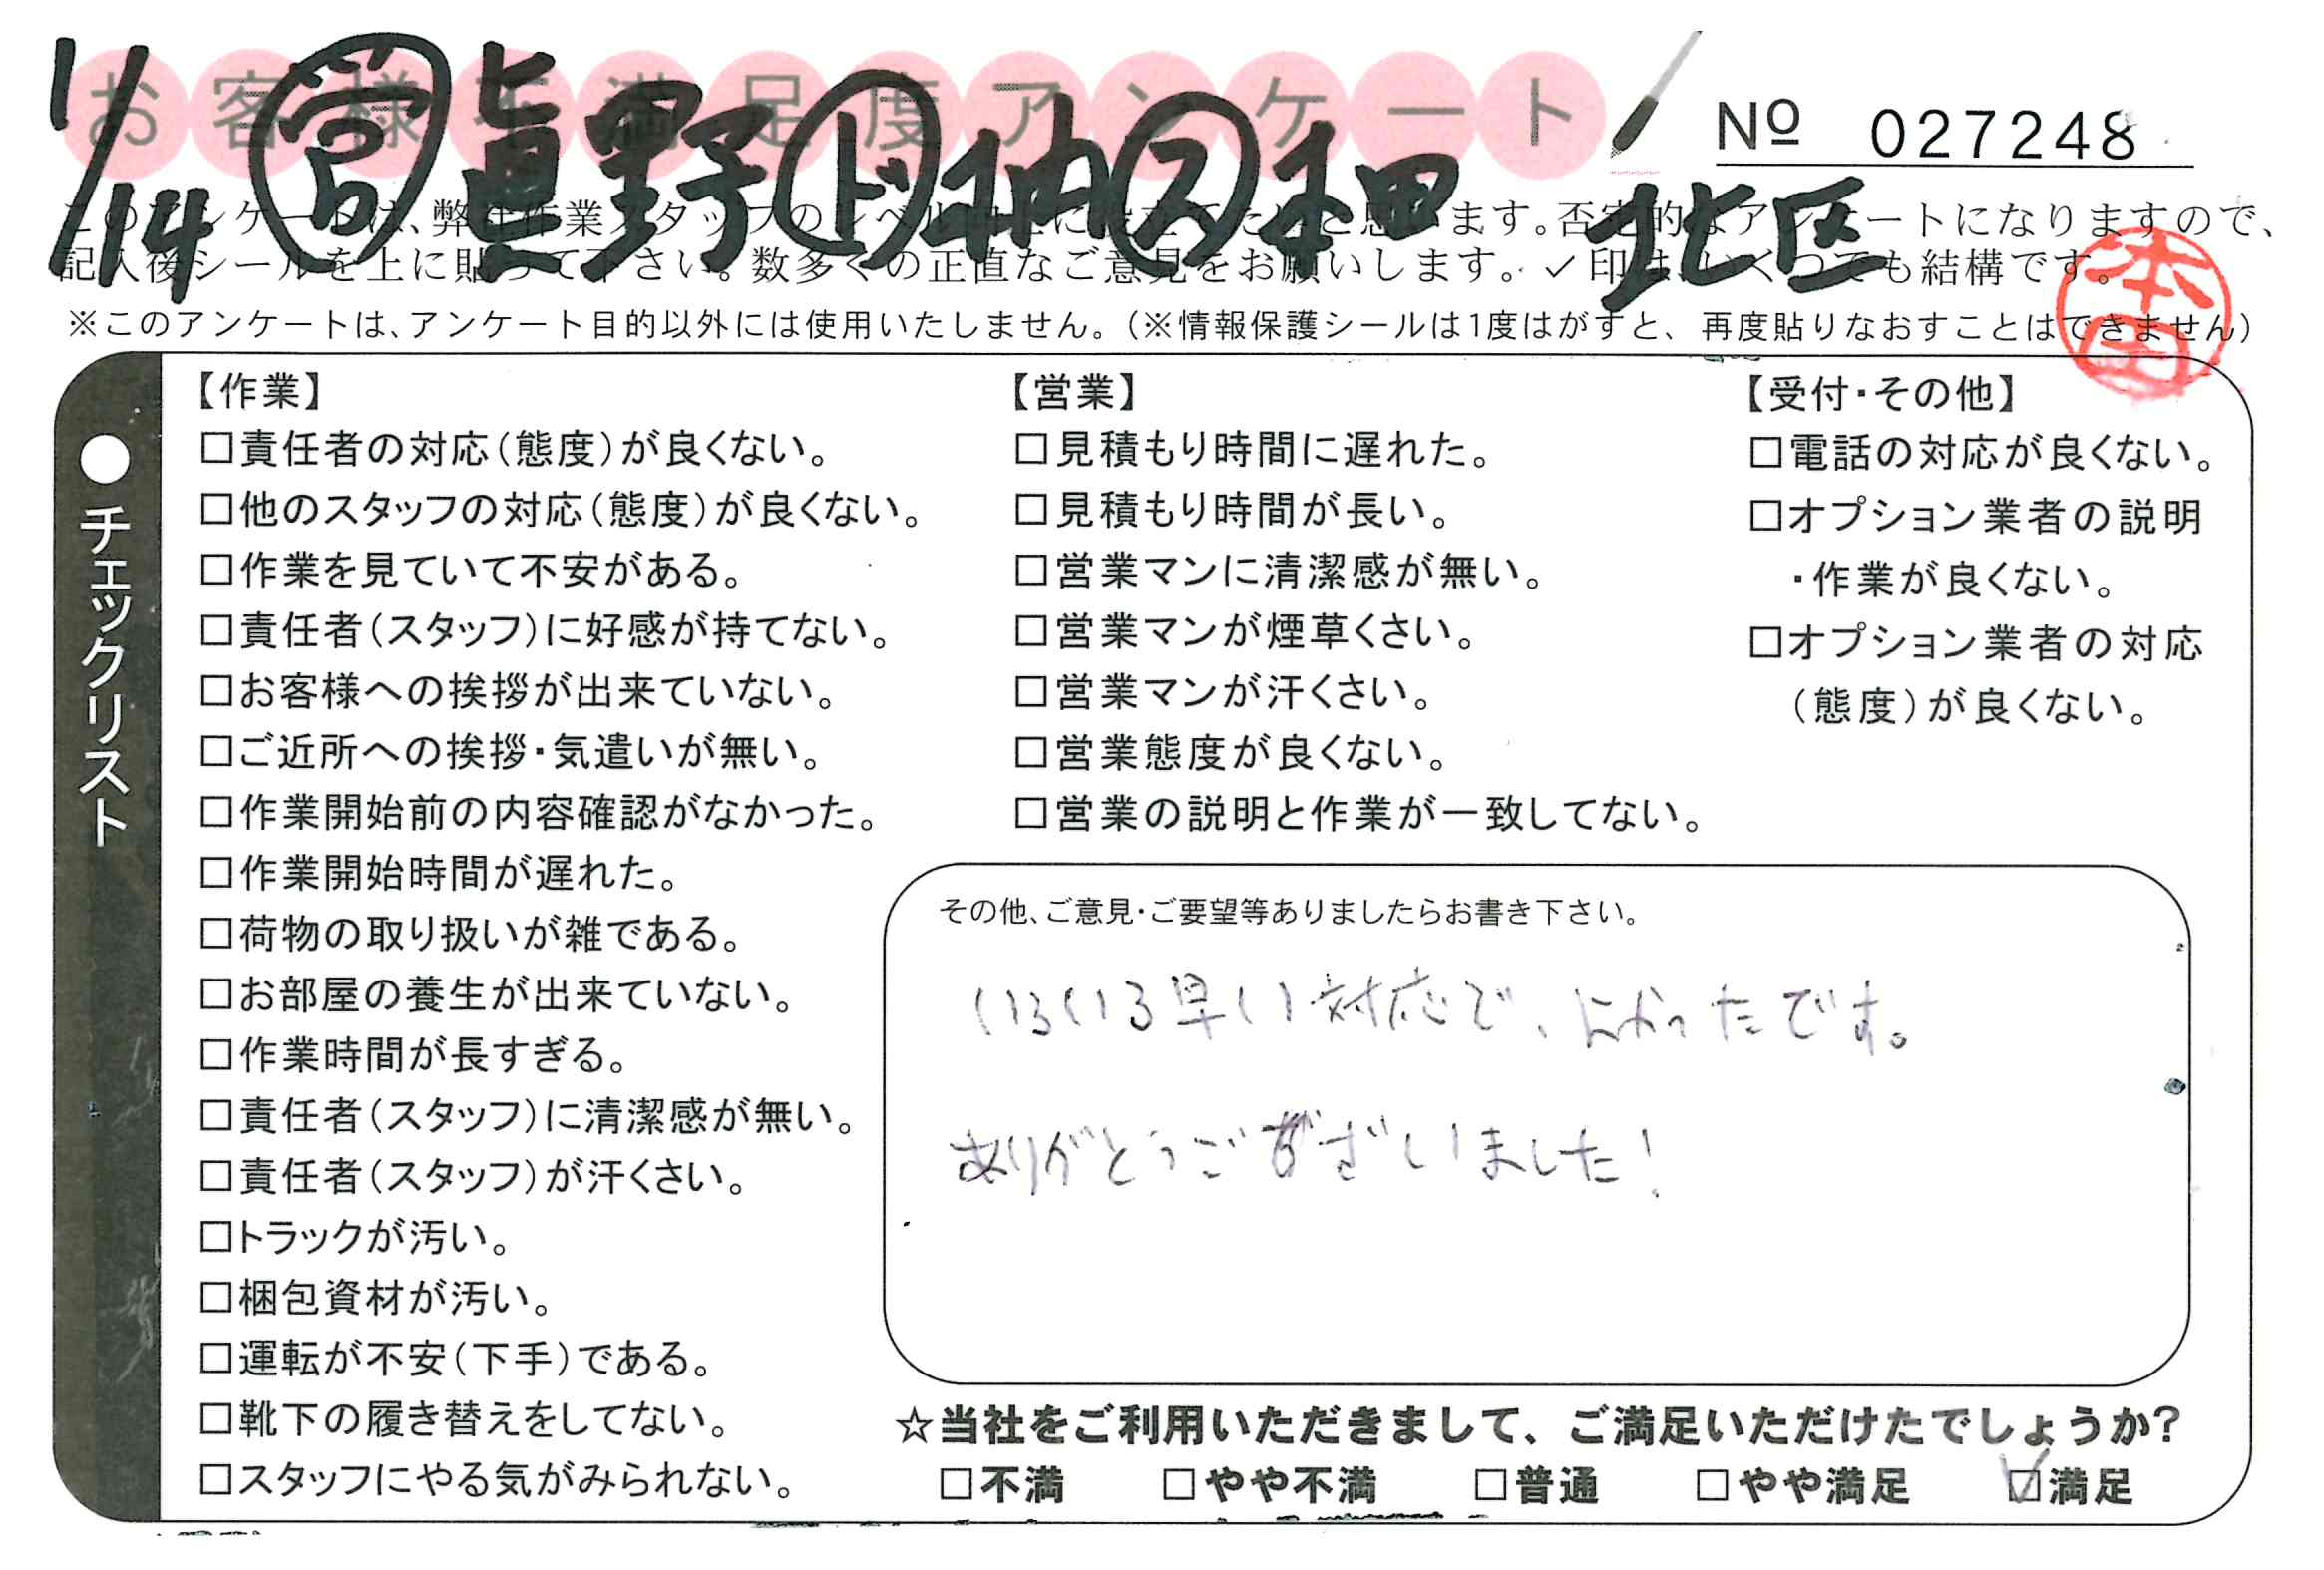 お客様不満足度アンケート
№ 027248
1/14 営 眞野 ド 袖 ス 本田 北区
このアンケートは、弊社作業スタッフのレベル向上に役立てたいと思います。否定的なアンケートになりますので、
記入後シールを上に貼って下さい。数多くの正直なご意見をお願いします。✓印はいくつでも結構です。
※このアンケートは、アンケート目的以外には使用いたしません。（※情報保護シールは1度はがすと、再度貼りなおすことはできません）
●チェックリスト
【作業】
□責任者の対応（態度）が良くない。
□他のスタッフの対応（態度）が良くない。
□作業を見ていて不安がある。
□責任者（スタッフ）に好感が持てない。
□お客様への挨拶が出来ていない。
□ご近所への挨拶・気遣いが無い。
□作業開始前の内容確認がなかった。
□作業開始時間が遅れた。
□荷物の取り扱いが雑である。
□お部屋の養生が出来ていない。
□作業時間が長すぎる。
□責任者（スタッフ）に清潔感が無い。
□責任者（スタッフ）が汗くさい。
□トラックが汚い。
□梱包資材が汚い。
□運転が不安（下手）である。
□靴下の履き替えをしてない。
□スタッフにやる気がみられない。
【営業】
□見積もり時間に遅れた。
□見積もり時間が長い。
□営業マンに清潔感が無い。
□営業マンが煙草くさい。
□営業マンが汗くさい。
□営業態度が良くない。
□営業の説明と作業が一致してない。
【受付・その他】
□電話の対応が良くない。
□オプション業者の説明
・作業が良くない。
□オプション業者の対応
（態度）が良くない。
その他、ご意見・ご要望等ありましたらお書き下さい。
いろいろ早い対応で、よかったです。
ありがとうございました！
☆当社をご利用いただきまして、ご満足いただけたでしょうか?
□不満 □やや不満 □普通 □やや満足 ☑満足